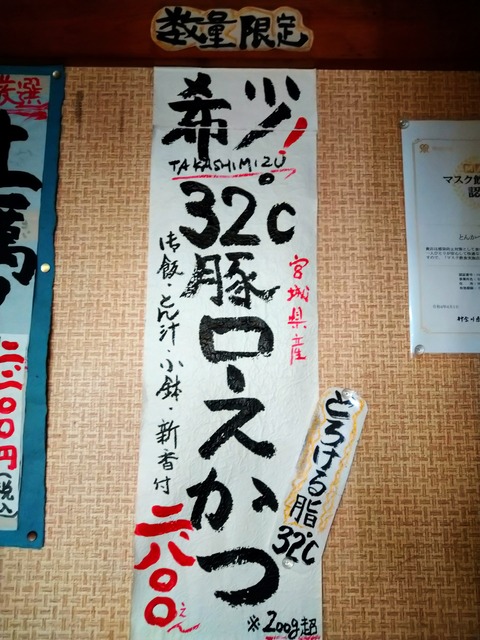 数量限定
希少!
TAKASHIMIZU
32℃
豚ロースかつ
宮城県産
御飯・とん汁・小鉢・新香付
二、八〇〇えん
※200g超
とろける脂
32℃
厳選
二、二〇〇円(税込)
マスク飲
認
とんかつ